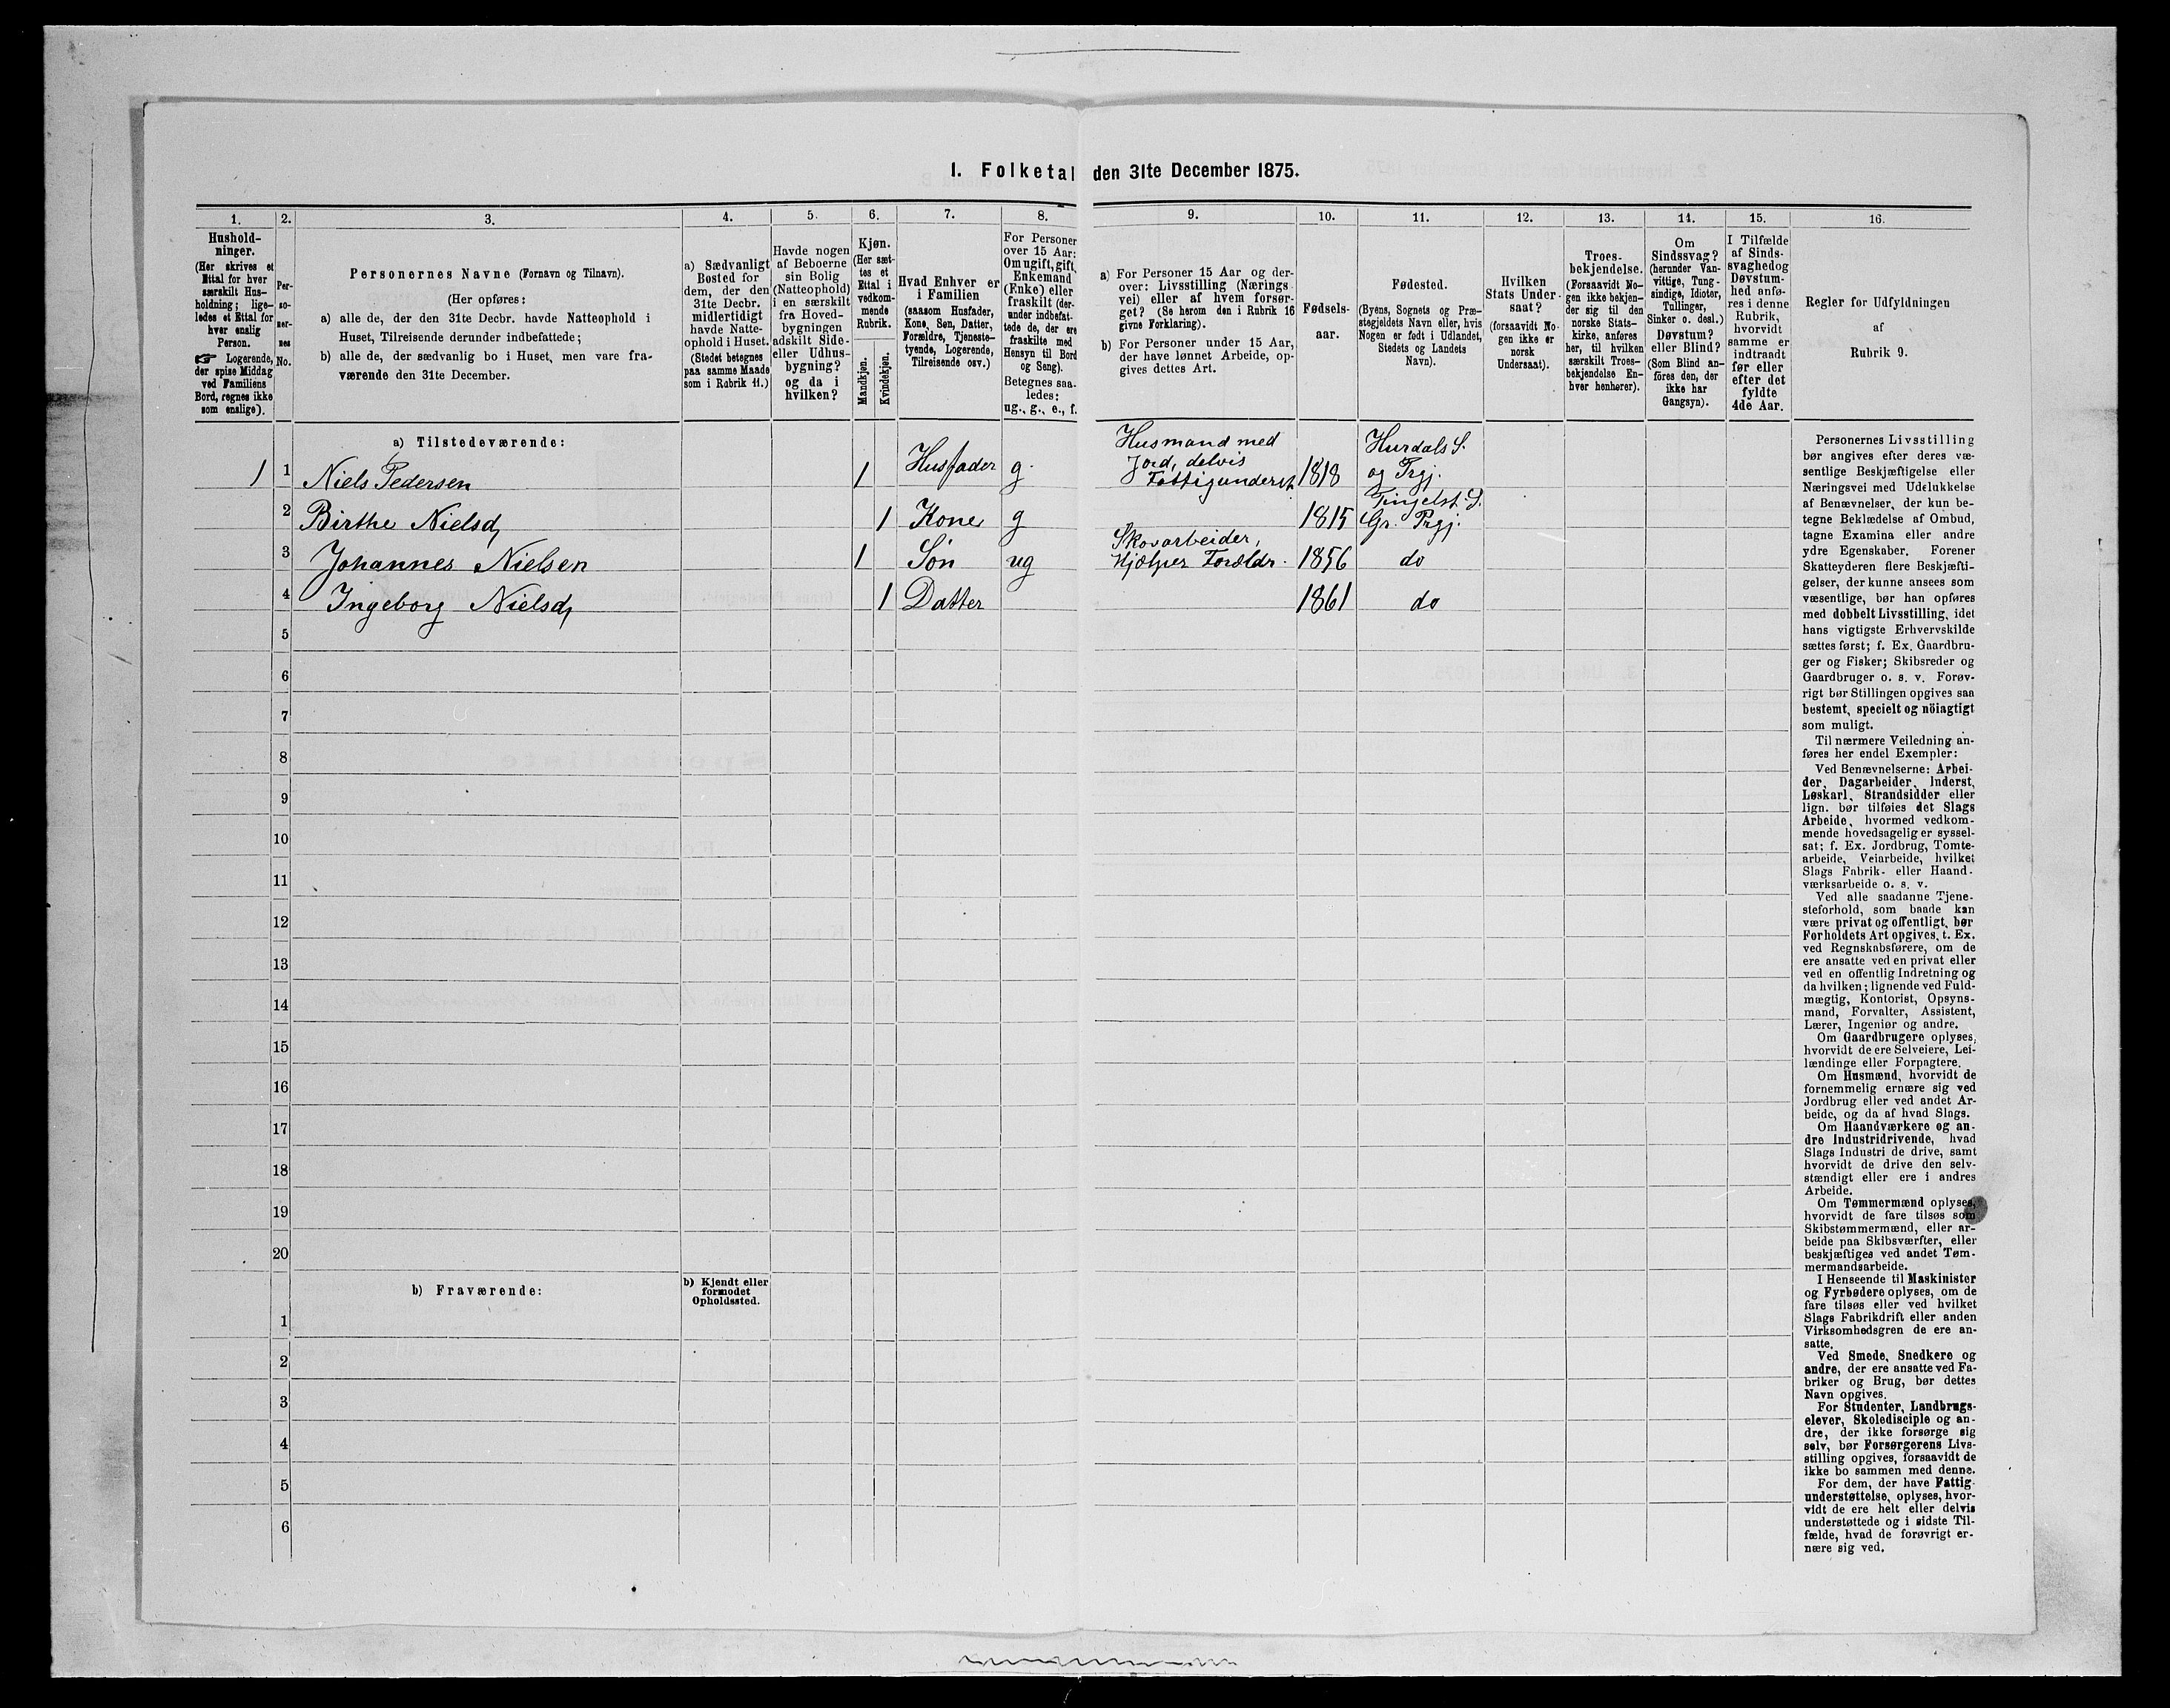 I. Folketal den 31te December 1875.
1.
Hushold-
ninger.
(Her skrives et
Ettal for hver
særskilt Hus-
holdning; lige-
ledes et Ettal for
hver enslig
Person.
☞ Logerende,
der spise Middag
ved Familiens
Bord, regnes ikke
som enslige).
2.
Per-
so-
ner-
nes
No.
3.
Personernes Navne (Fornavn og Tilnavn).
(Her opføres:
a) alle de, der den 31te Decbr. havde Natteophold i
Huset, Tilreisende derunder indbefattede;
b) alle de, der sædvanlig bo i Huset, men vare fra-
værende den 31te December.
4.
a) Sædvanligt
Bosted for
dem, der den
31te Decbr.
midlertidigt
havde Natte-
ophold i Huset.
(Stedet betegnes
paa samme Maade
som i Rubrik 11.)
5.
Havde nogen
af Beboerne
sin Bolig
(Natteophold)
i en særskilt
fra Hoved-
bygningen
adskilt Side-
eller Udhus-
bygning?
og da i
hvilken?
6.
Kjøn.
(Her sæt-
tes et
Ettal i
vedkom-
mende
Rubrik.
Mandkjøn.
Kvindekjøn.
7.
Hvad Enhver er
i Familien
(saasom Husfader,
Kone, Søn, Datter,
Forældre, Tjeneste-
tyende, Logerende,
Tilreisende osv.)
8.
For Personer
over 15 Aar:
Om ugift, gift,
Enkemand
(Enke) eller
fraskilt (der-
under indbefat-
tede de, der ere
fraskilte med
Hensyn til Bord
og Seng).
Betegnes saa-
ledes:
ug., g., e., f.
9.
a) For Personer 15 Aar og der-
over: Livsstilling (Nærings-
vei) eller af hvem forsør-
get? (Se herom den i Rubrik 16
givne Forklaring).
b) For Personer under 15 Aar,
der have lønnet Arbeide, op-
gives dettes Art.
10.
Fødsels-
aar.
11.
Fødested.
(Byens, Sognets og Præ-
stegjeldets Navn eller, hvis
Nogen er født i Udlandet,
Stedets og Landets
Navn).
12.
Hvilken
Stats Under-
saat?
(forsaavidt No-
gen ikke er
norsk
Undersaat).
13.
Troes-
bekjendelse.
(Forsaavidt No-
gen ikke bekjen-
der sig til den
norske Stats-
kirke, anføres
her, til hvilken
særskilt Troes-
bekjendelse En-
hver henhører).
14.
Om
Sindssvag?
(herunder Van-
vittige, Tung-
sindige, Idioter,
Tullinger,
Sinker o. desl.)
Døvstum?
eller Blind?
(Som Blind an-
föres den, der
ikke har
Gangsyn).
15.
I Tilfælde
af Sinds-
svaghed og
Døvstum-
hed anfø-
res i denne
Rubrik,
hvorvidt
samme er
indtraadt
før eller
efter det
fyldte
4de Aar.
16.
Regler for Udfyldningen
af
Rubrik 9.
a) Tilstedeværende:
1 1 Niels Pedersen 1 Husfader g. Husmand med Jord, delvis Fattigunderst. 1818 Hurdals S. og Prgj.
2 Birthe Nielsd 1 Kone g 1815 Tingelst. S. Gr. Prgj.
3 Johannes Nielsen 1 Søn ug Skovarbeider, Hjælper Forældr. 1856 do
4 Ingeborg Nielsd 1 Datter 1861 do
5
6
7
8
9
10
11
12
13
14
15
16
17
18
19
20
b) Fraværende:
b) Kjendt eller
formodet
Opholdssted.
1
2
3
4
5
6
Personernes Livsstilling
bør angives efter deres væ-
sentlige Beskjæftigelse eller
Næringsvei med Udelukkelse
af Benævnelser, der kun be-
tegne Beklædelse af Ombud,
tagne Examina eller andre
ydre Egenskaber. Forener
Skatteyderen flere Beskjæfti-
gelser, der kunne ansees som
væsentlige, bør han opføres
med dobbelt Livsstilling, idet
hans vigtigste Erhvervskilde
sættes først; f. Ex. Gaardbru-
ger og Fisker; Skibsreder og
Gaardbruger o. s. v. Forøv-
rigt bør Stillingen opgives saa
bestemt, specielt og nöiagtigt
som muligt.
Til nærmere Veiledning an-
føres her endel Exempler:
Ved Benævnelserne: Arbei-
der, Dagarbeider, Inderst,
Løskarl, Strandsidder eller
lign. bør tilføies det Slags
Arbeide, hvormed vedkom-
mende hovedsagelig er syssel-
sat; f. Ex. Jordbrug, Tomte-
arbeide, Veiarbeide, hvilket
Slags Fabrik- eller Haand-
værksarbeide o. s. v.
Ved alle saadanne Tjene-
steforhold, som baade kan
være privat og offentligt, bør
Forholdets Art opgives, t. Ex.
ved Regnskabsførere, om de
ere ansatte ved en privat eller
ved en offentlig Indretning og
da hvilken; lignende ved Fuld-
mægtig, Kontorist, Opsyns-
mand, Forvalter, Assistent,
Lærer, Ingeniør og andre.
Om Gaardbrugere oplyses,
hvorvidt de ere Selveiere, Lei-
lændinge eller Forpagtere.
Om Husmænd, hvorvidt de
fornemmelig ernære sig ved
Jordbrug eller ved andet Ar-
beide, og da af hvad Slags.
Om Haandværkere og an-
dre Industridrivende, hvad
Slags Industri de drive, samt
hvorvidt de drive den selv-
stændigt eller ere i andres
Arbeide.
Om Tømmermænd oplyses,
hvorvidt de fare tilsøs som
Skibstømmermænd, eller ar-
beide paa Skibsværfter, eller
beskjæftiges ved andet Tøm-
mermandsarbeide.
I Henseende til Maskinister
og Fyrbødere oplyses, om de
fare tilsøs eller ved hvilket
Slags Fabrikdrift eller anden
Virksomhedsgren de ere an-
satte.
Ved Smede, Snedkere og
andre, der ere ansatte ved Fa-
briker og Brug, bør dettes
Navn opgives.
For Studenter, Landbrugs-
elever, Skoledisciple og an-
dre, der ikke forsørge sig
selv, bør Forsørgerens Livs-
stilling opgives, forsaavidt de
ikke bo sammen med denne.
For dem, der have Fattig-
understøttelse, oplyses, hvor-
vidt de ere helt eller delvis
understøttede og i sidste Til-
fælde, hvad de forøvrigt er-
nære sig ved.